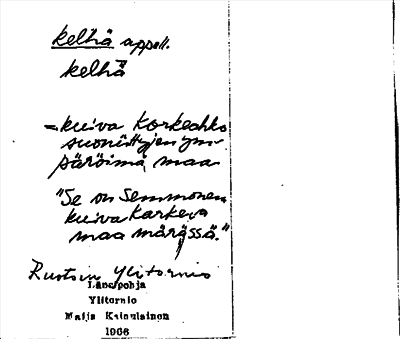 kelhä appell.
kelhä
= kuiva korkeahko
suonittyjen ym-
päröimä maa
"Se on semmonen
kuiva karkeva
maa märässä."
Ruotsin Ylitornio
Länsipohja
Ylitornio
Maija
1966